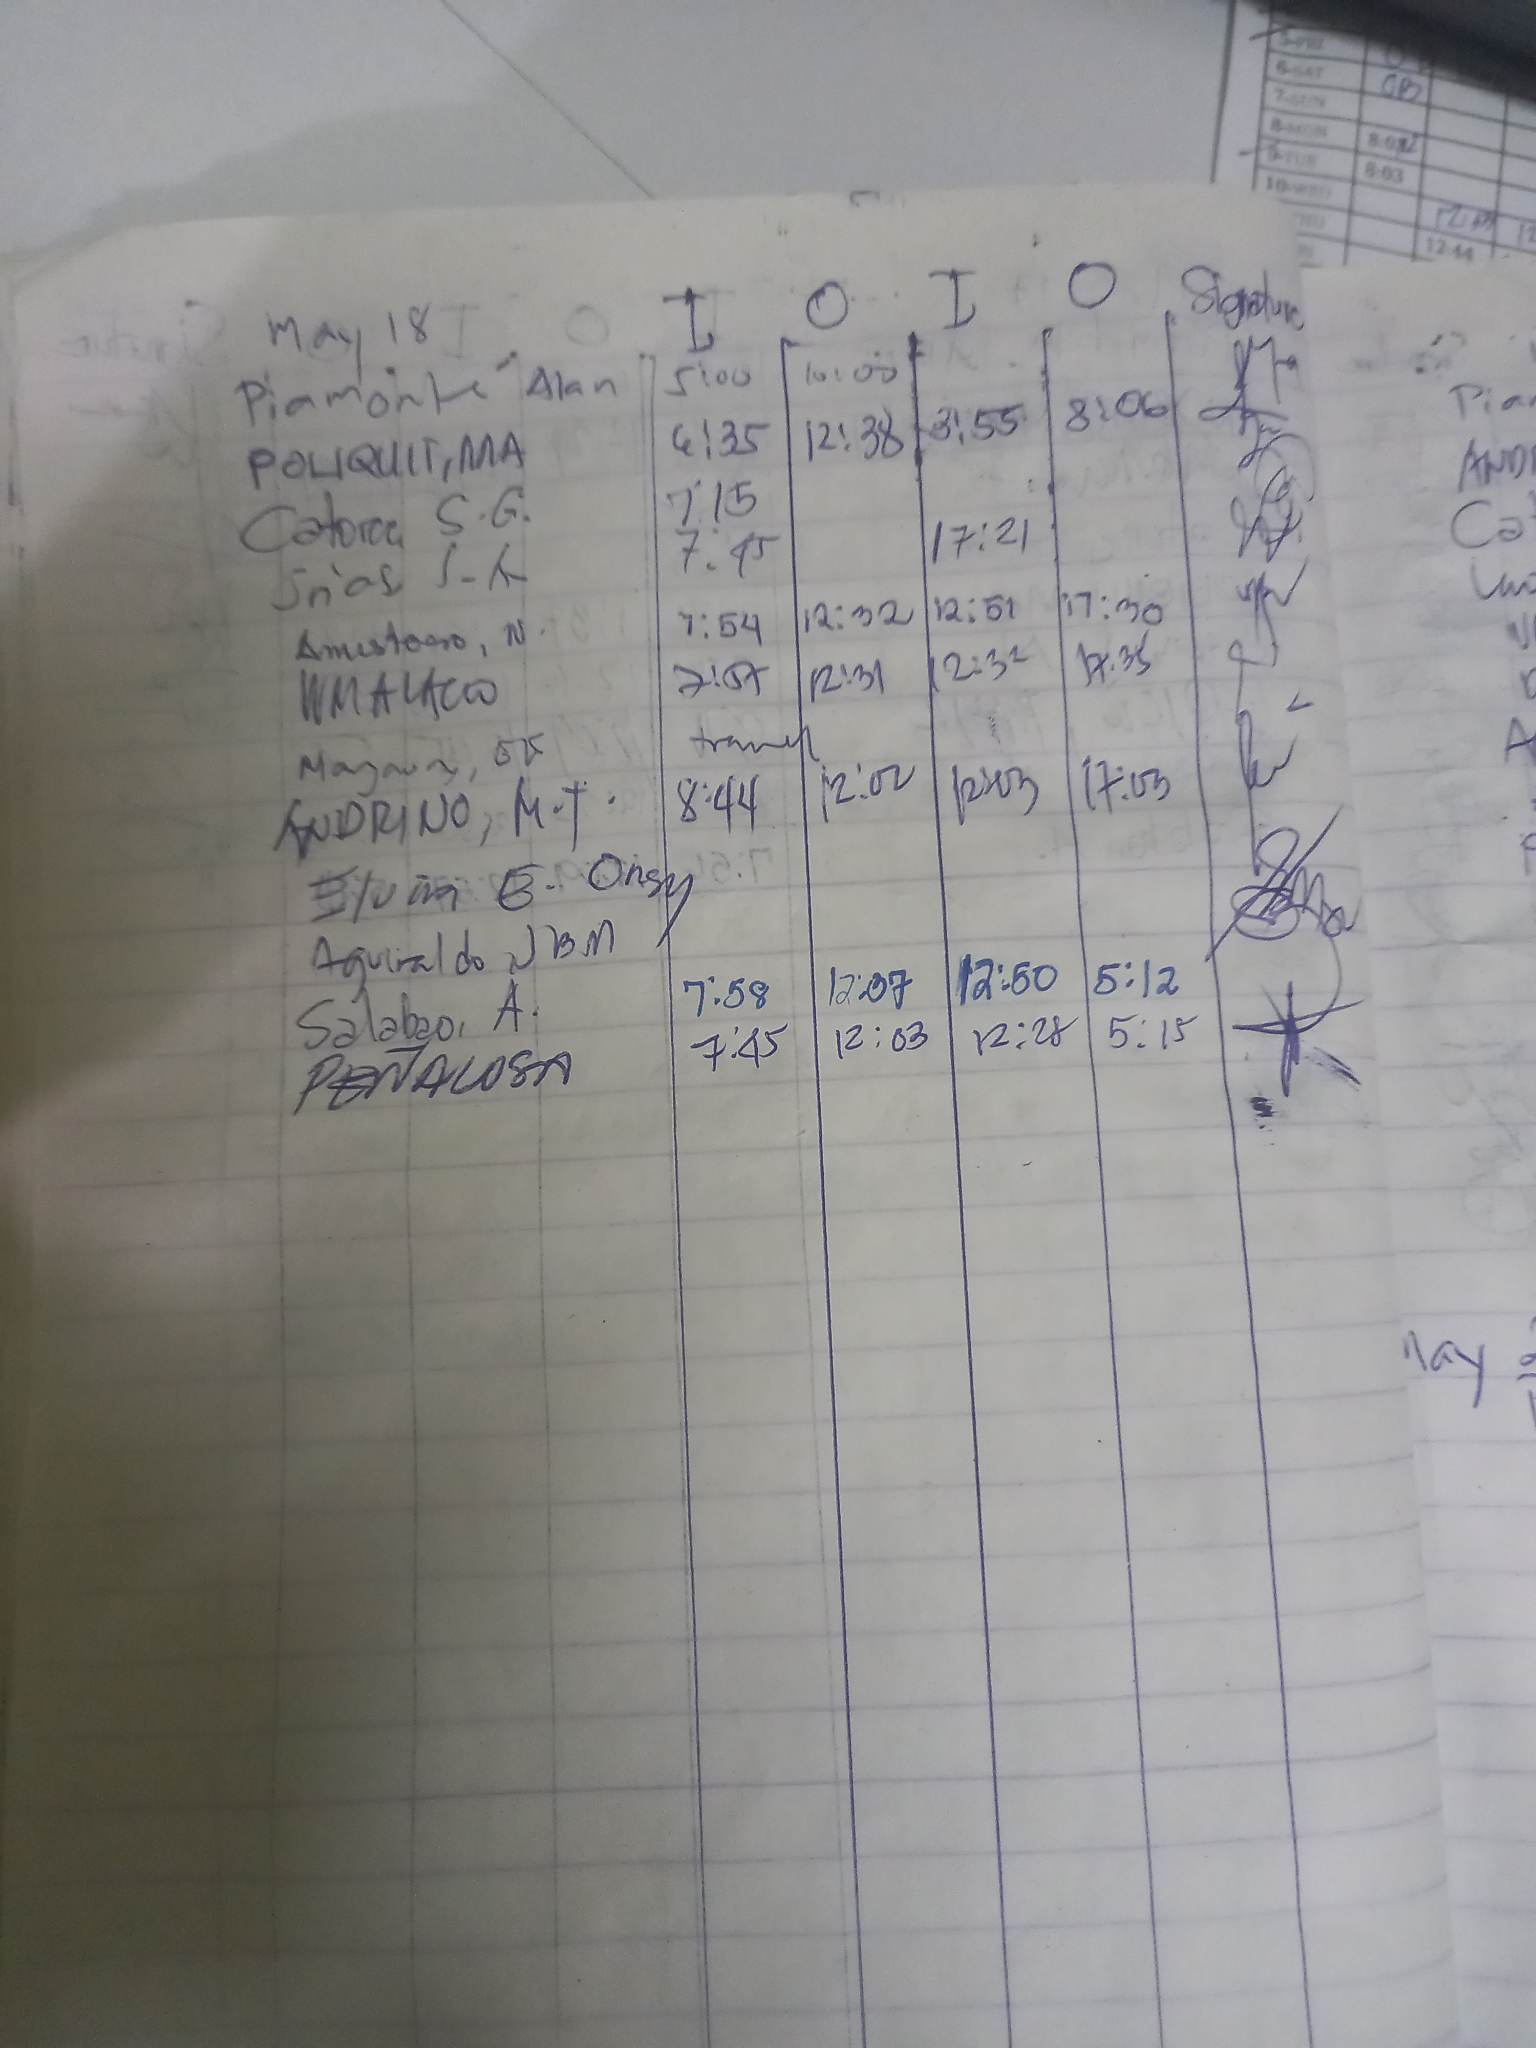 5-FRI
6-SAT OB
7-SUN
8-MON 8:02
9-TUE 8:03
10-WED
12:44
May 18 I O I O Signature
Piamonte Alan 5:00 10:00
POLIQUIT, MA 6:35 12:38 3:55 8:06
Catorce S.G. 7:15
7:45 17:21
N. 7:54 12:32 12:51 17:30
WMALACO 7:57 12:31 12:32 17:35
travel
ANDRINO, M.T. 8:44 12:02 12:03 17:03
E. Ongy
Aguinaldo JBM
Salabao, A. 7:58 12:07 12:50 5:12
PEÑALOSA 7:45 12:03 12:28 5:15
Piam
ANDR
Cat
May